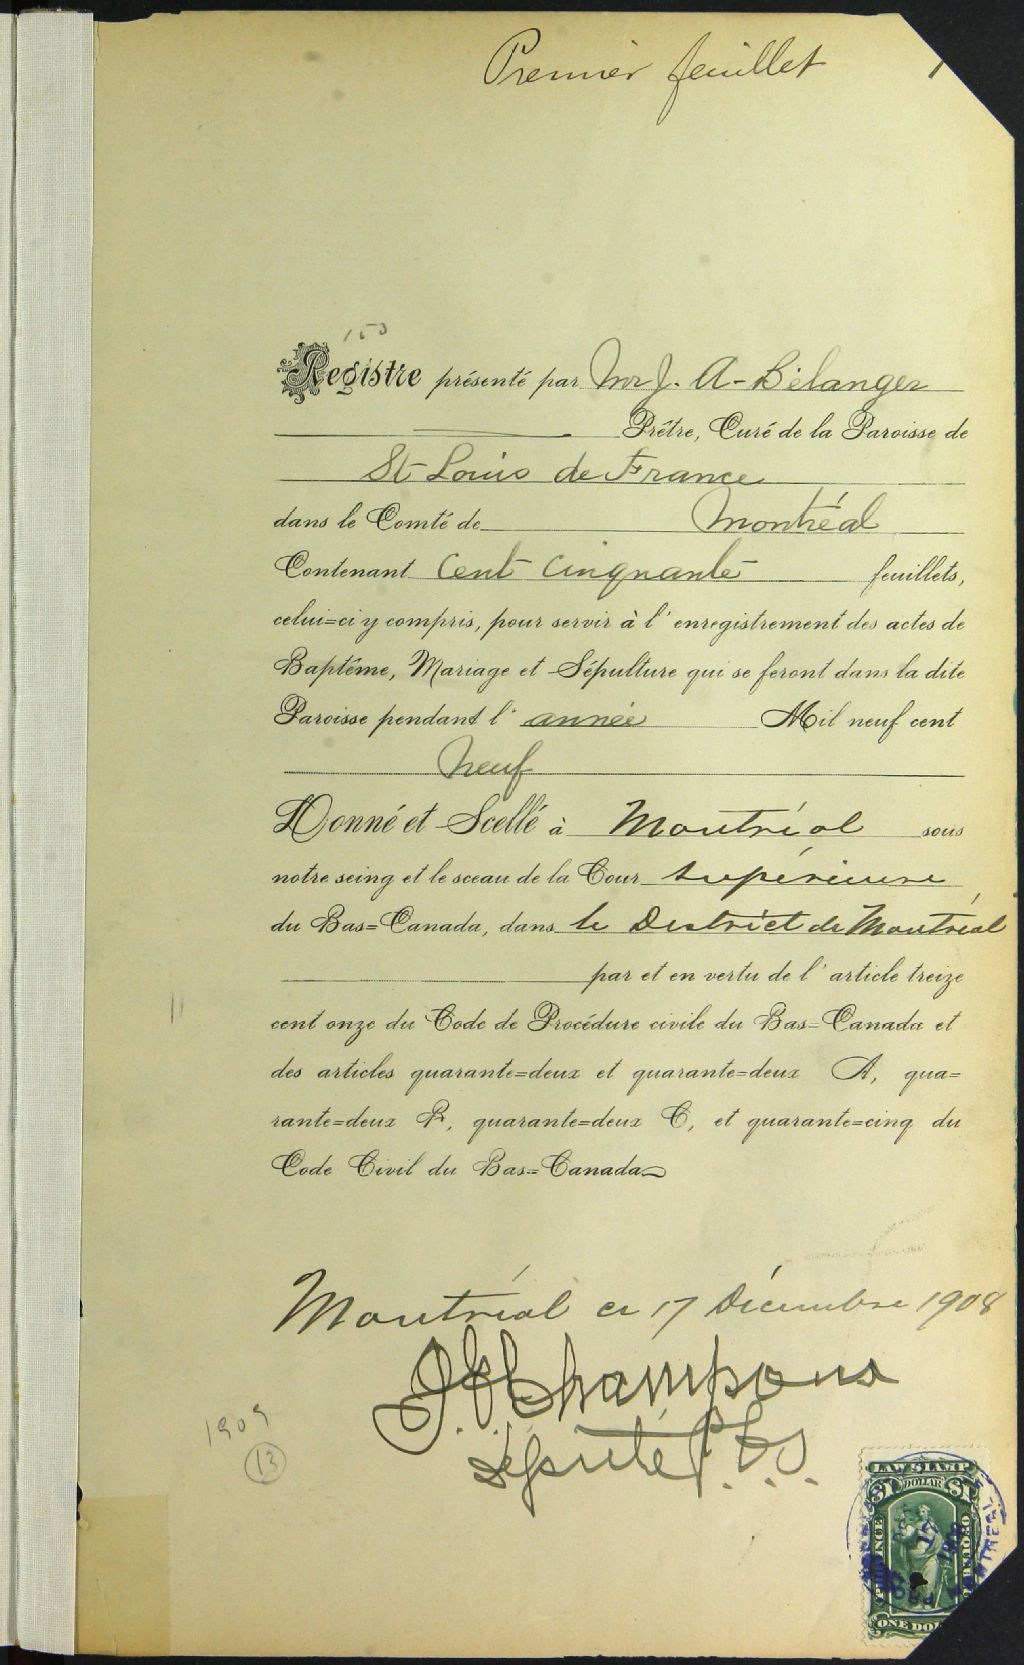 Premier feuillet
1
150
Registre présenté par Mr J. A-Bélanger
Prêtre, Curé de la Paroisse de
St Louis de France
dans le Comté de Montréal
Contenant Cent Cinquante feuillets,
celui=ci y compris, pour servir à l'enregistrement des actes de
Baptême, Mariage et Sépulture qui se feront dans la dite
Paroisse pendant l'année Mil neuf cent
Neuf
Donné et Scellé à Montréal sous
notre seing et le sceau de la Cour Supérieure
du Bas=Canada, dans le District de Montréal
par et en vertu de l'article treize
cent onze du Code de Procédure civile du Bas=Canada et
des articles quarante=deux et quarante=deux A, qua=
rante=deux B, quarante=deux C, et quarante=cinq du
Code Civil du Bas=Canada
Montréal ce 17 Décembre 1908
Champoux
Député P.C.S.
1909
13
LAW STAMP
$1 DOLLAR $1
PROVINCE
17
MONTREAL
ONE DOL